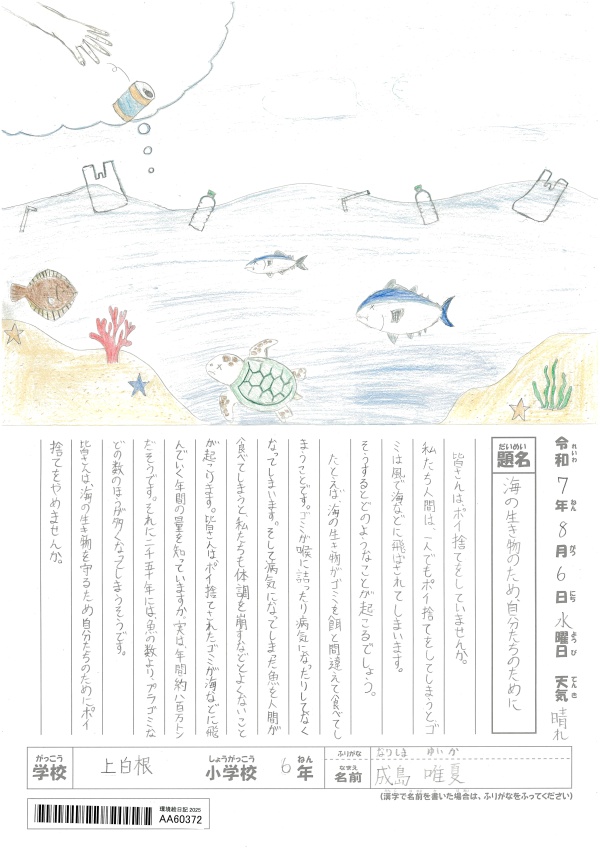 令和7年8月6日水曜日 天気晴れ
れいわ ねん がつ にち ようび てんき
題名 海の生き物のため、自分たちのために
だいめい
皆さんはポイ捨てをしていませんか。
私たち人間は、一人でもポイ捨てをしてしまうとゴ
ミは風で海などに飛ばされてしまいます。
そうするとどのようなことが起こるでしょう。
たとえば、海の生き物がゴミを餌と間違えて食べてし
まうことです。ゴミが喉に詰ったり病気になったりして亡く
なってしまいます。そして病気になってしまった魚を人間が
食べてしまうと、私たちも体調を崩すなどとよくないこと
が起こります。皆さんはポイ捨てされたゴミが海などに飛
んでいく年間の量を知っていますか。実は、年間約八百万トン
だそうです。それに二千五十年には、魚の数より、プラゴミな
どの数のほうが多くなってしまうそうです。
皆さんは、海の生き物を守るため自分たちのために、ポイ
捨てをやめませんか。
がっこう しょうがっこう ねん
学校 上白根 小学校 6年
ふりがな なりしま ゆいか
なまえ
名前 成島 唯夏
(漢字で名前を書いた場合は、ふりがなをふってください)
環境絵日記 2025
AA60372